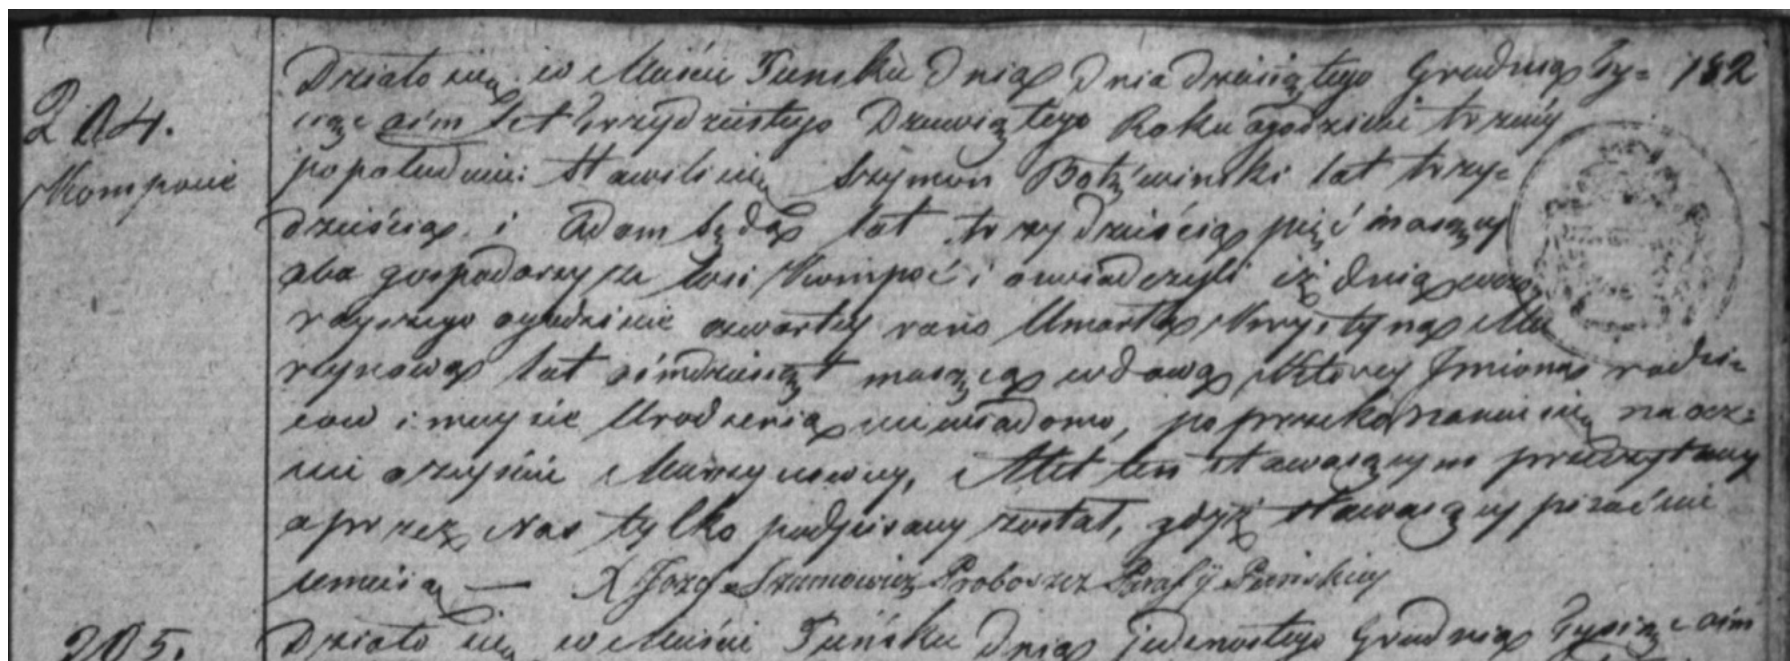 182
204.
Kompocie
Działo się w Mieście Puńsku dnia Dnia dziesiątego Grudnia Ty=
siąc ośm set trzydziestego Dziewiątego Roku ogodzinie trzeciy
popołudniu: Stawili się Szymon lat trzy=
dzieścia i Adam Sęda lat trzydzieścia pięć maiący
oba gospodarzy ze wsi Kompoć i oswiadczyli iż dnia wczo
rayszego ogodzinie czwartey rano Umarła Krystyna
lat ośmdziesiąt maiąca wdowa Ktorey Imiona rodzi=
cow i mieysce Urodzenia niewiadomo, po przekonaniu się naocz=
nie o zeyściu Akt ten stawaiącym przeczytany
a przez Nas tylko podpisany został, gdyż stawaiący pisać nie
umieią — X Jozef Szumowicz Proboszcz Parafij Puńskiey
205.
Działo się w Mieście Puńsku dnia jedenastego Grudnia Tysiąc ośm